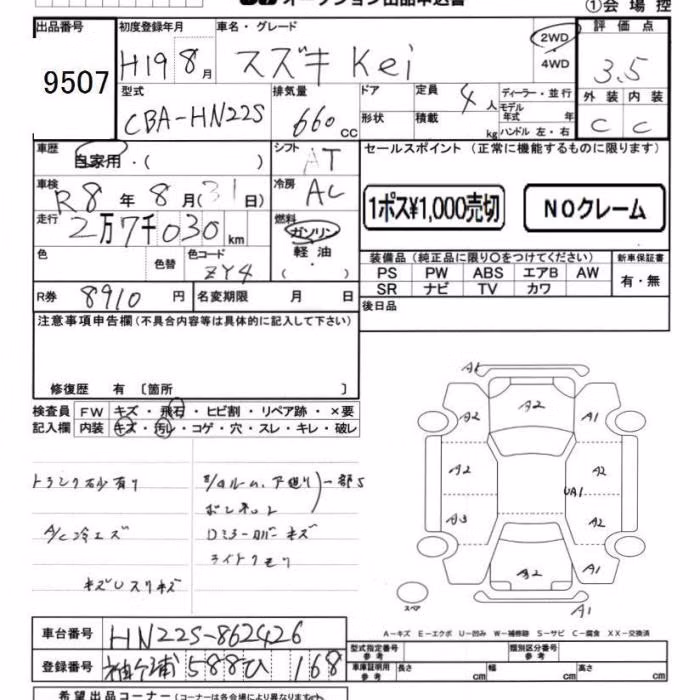 オークション出品申込書
①会場控
出品番号 初度登録年月 車名・グレード 2WD 評価点
9507 H19 8月 スズキ Kei 4WD 3.5
型式 排気量 ドア 定員 4人 ディーラー・並行 外装 内装
CBA-HN22S 660cc 形状 積載 kg モデル年式 年 C C
ハンドル 左・右
車歴 自家用・( ) シフト AT セールスポイント (正常に機能するものに限ります)
車検 R8年8月(31日) 冷房 AC
1ポス¥1,000売切 NOクレーム
走行 2万7千030km 燃料 ガソリン
軽油
・( )
色 色替 色コード ZY4 装備品 (純正品に限り○をつけてください) 新車保証書
PS PW ABS エアB AW 有・無
R券 8910円 名変期限 月 日 SR ナビ TV カワ
注意事項申告欄 (不具合内容等は具体的に記入して下さい) 後日品
修復歴 有 〔箇所 〕
検査員 FW キズ・飛石・ヒビ割・リペア跡・×要
記入欄 内装 キズ・汚レ・コゲ・穴・スレ・キレ・破レ
A1
A2 A2 A1
A2 A2
UA1
A3 A2
A2 A1
A1
スペア
トランク砂有り
ボンネット 一部S
A/C冷エズ Dミラーカバーキズ
ライトクモリ
キズUスリキズ
A-キズ E-エクボ U-凹み W-補修跡 S-サビ C-腐食 XX-交換済
車台番号 HN22S-862426
型式指定番号 類別区分番号
登録番号 袖ケ浦 588ひ 168
車庫証明用参考 長さ cm 幅 cm 高さ cm
希望出品コーナー (コーナーは各会場により異なります)